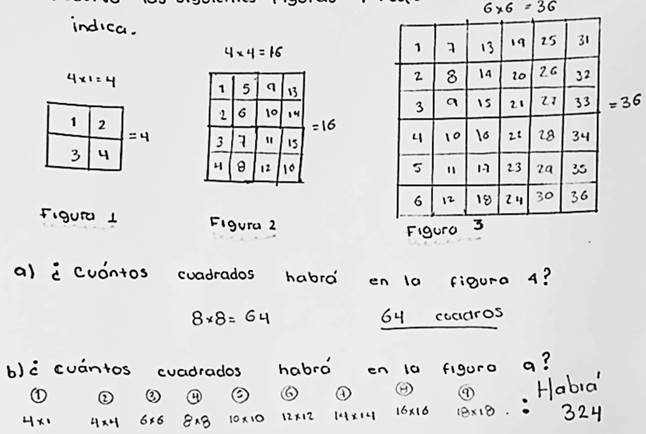 indica.
4x1=4
1 2
3 4
=4
Figura 1
4x4=16
1 5 9 13
2 6 10 14
3 7 11 15
4 8 12 16
=16
Figura 2
6x6=36
1 7 13 19 25 31
2 8 14 20 26 32
3 9 15 21 27 33
4 10 16 22 28 34
5 11 17 23 29 35
6 12 18 24 30 36
=36
Figura 3
a) ¿Cuántos cuadrados habrá en la figura 4?
8x8=64
64 cuadros
b) ¿cuántos cuadrados habrá en la figura 9?
① ② ③ ④ ⑤ ⑥ ⑦ ⑧ ⑨
4x1 4x4 6x6 8x8 10x10 12x12 14x14 16x16 18x18. : Habrá
324